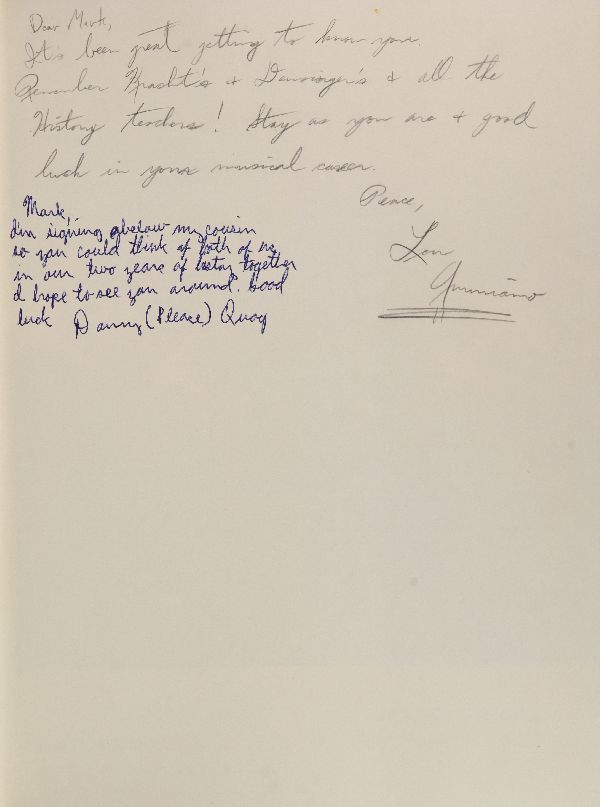 Dear Mark,
It's been great getting to know you.
Remember Kracht's + Denninger's + all the
History teachers! Stay as you are + good
luck in your musical career.
Peace,
Lou
Mark,
I'm signing below my cousin
so you could think of both of us
in our two years of together
I hope to see you around. Good
luck Danny (Please) Quag